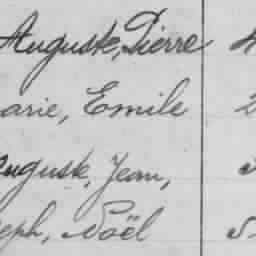 Auguste, Pierre 4
arie, Emile 2
Auguste, Jean,
seph, Noël